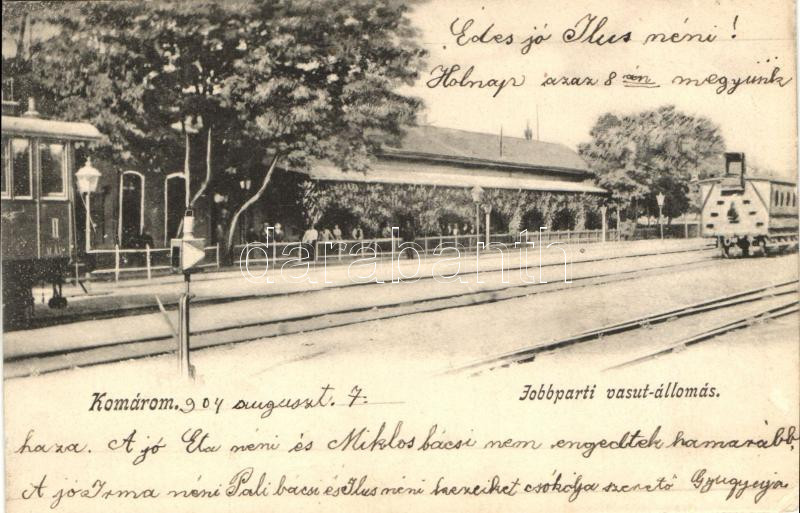 Édes jó Ilus néni!
Holnap azaz 8 án megyünk
darabanth
Komárom. 904 auguszt. 7.
Jobbparti vasut-állomás.
haza. A jó Eta néni és Miklos bácsi nem engedtek hamarább,
A jó Irma néni Pali bácsi és Ilus néni kezeiket csókolja szerető